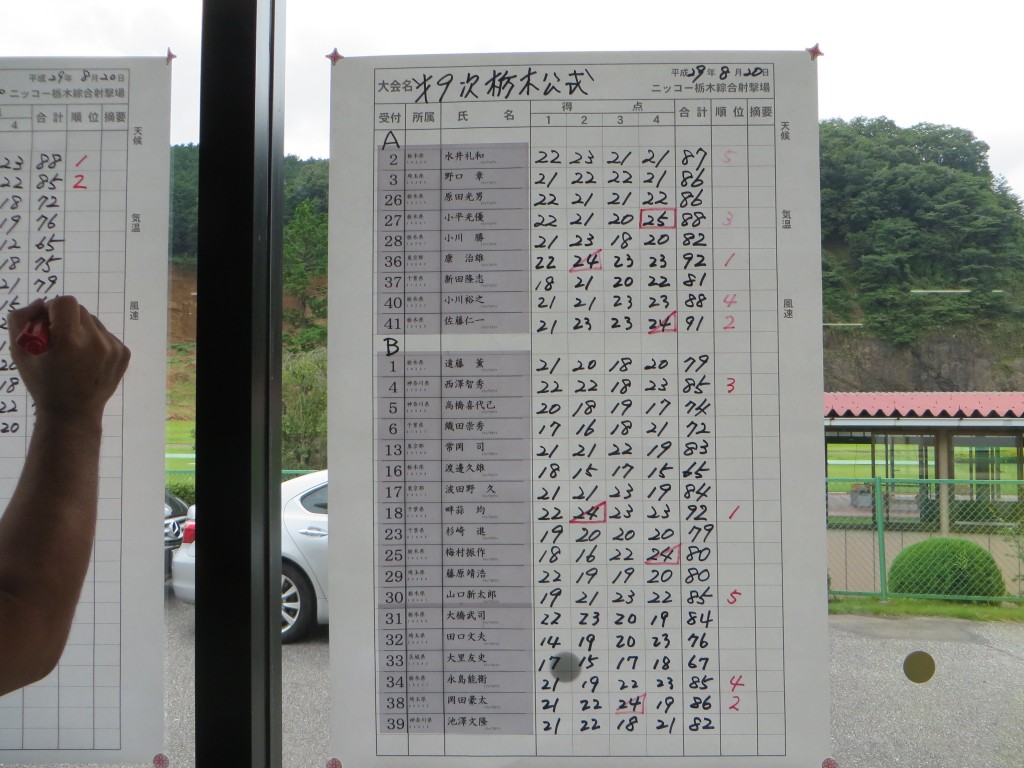 平成29年 8月20日
ニッコー栃木綜合射撃場
4 合計 順位 摘要
天候
23 88 1
22 85 2
18 72
19 76
気温
12 65
18 75
21 79
風速
18
22
20
大会名 才9次栃木公式
平成29年8月20日
ニッコー栃木綜合射撃場
受付 所属 氏名 得点 合計 順位 摘要
1 2 3 4
天候
A
2 栃木県 水井礼和 22 23 21 21 87 5
3 埼玉県 野口 章 21 22 22 21 86
26 栃木県 原田光男 22 21 21 22 86
27 栃木県 小平光優 22 21 20 25 88 3
気温
28 栃木県 小川 勝 21 23 18 20 82
36 東京都 康 治雄 22 24 23 23 92 1
37 千葉県 新田隆志 18 21 20 22 81
40 栃木県 小川裕之 21 21 23 23 88 4
風速
41 栃木県 佐藤仁一 21 23 23 24 91 2
B
1 栃木県 遠藤 薫 21 20 18 20 79
4 神奈川県 西澤智秀 22 22 18 23 85 3
5 神奈川県 高橋喜代己 20 18 19 17 74
6 千葉県 織田崇秀 17 16 18 21 72
13 東京都 常岡 司 21 21 22 19 83
16 栃木県 渡邊久雄 18 15 17 15 65
17 東京都 波田野 久 21 21 23 19 84
18 千葉県 畔蒜 均 22 24 23 23 92 1
23 千葉県 杉崎 進 19 20 20 20 79
25 栃木県 梅村振作 18 16 22 24 80
29 埼玉県 藤原靖浩 22 19 19 20 80
30 埼玉県 山口新太郎 19 21 23 22 85 5
31 栃木県 大橋武司 22 23 20 19 84
32 埼玉県 田口文夫 14 19 20 23 76
33 茨城県 大里友史 17 15 17 18 67
34 栃木県 永島能衛 21 19 22 23 85 4
38 埼玉県 岡田豪太 21 22 24 19 86 2
39 神奈川県 池澤文隆 21 22 18 21 82